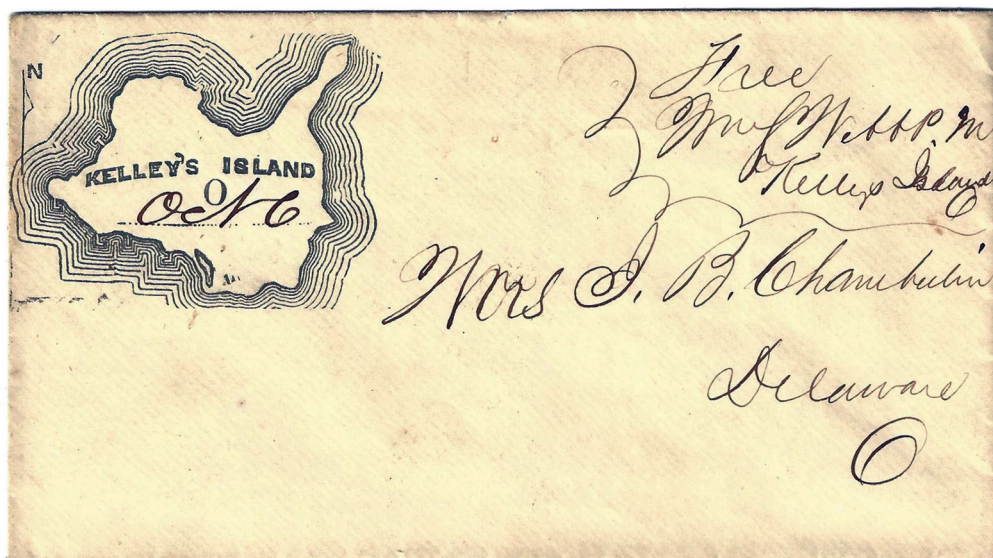 N
KELLEY'S ISLAND
O
Free
Wm S Webb P. M
Kelleys Island
O
Mrs J. B. Chamberlin
Delaware
O